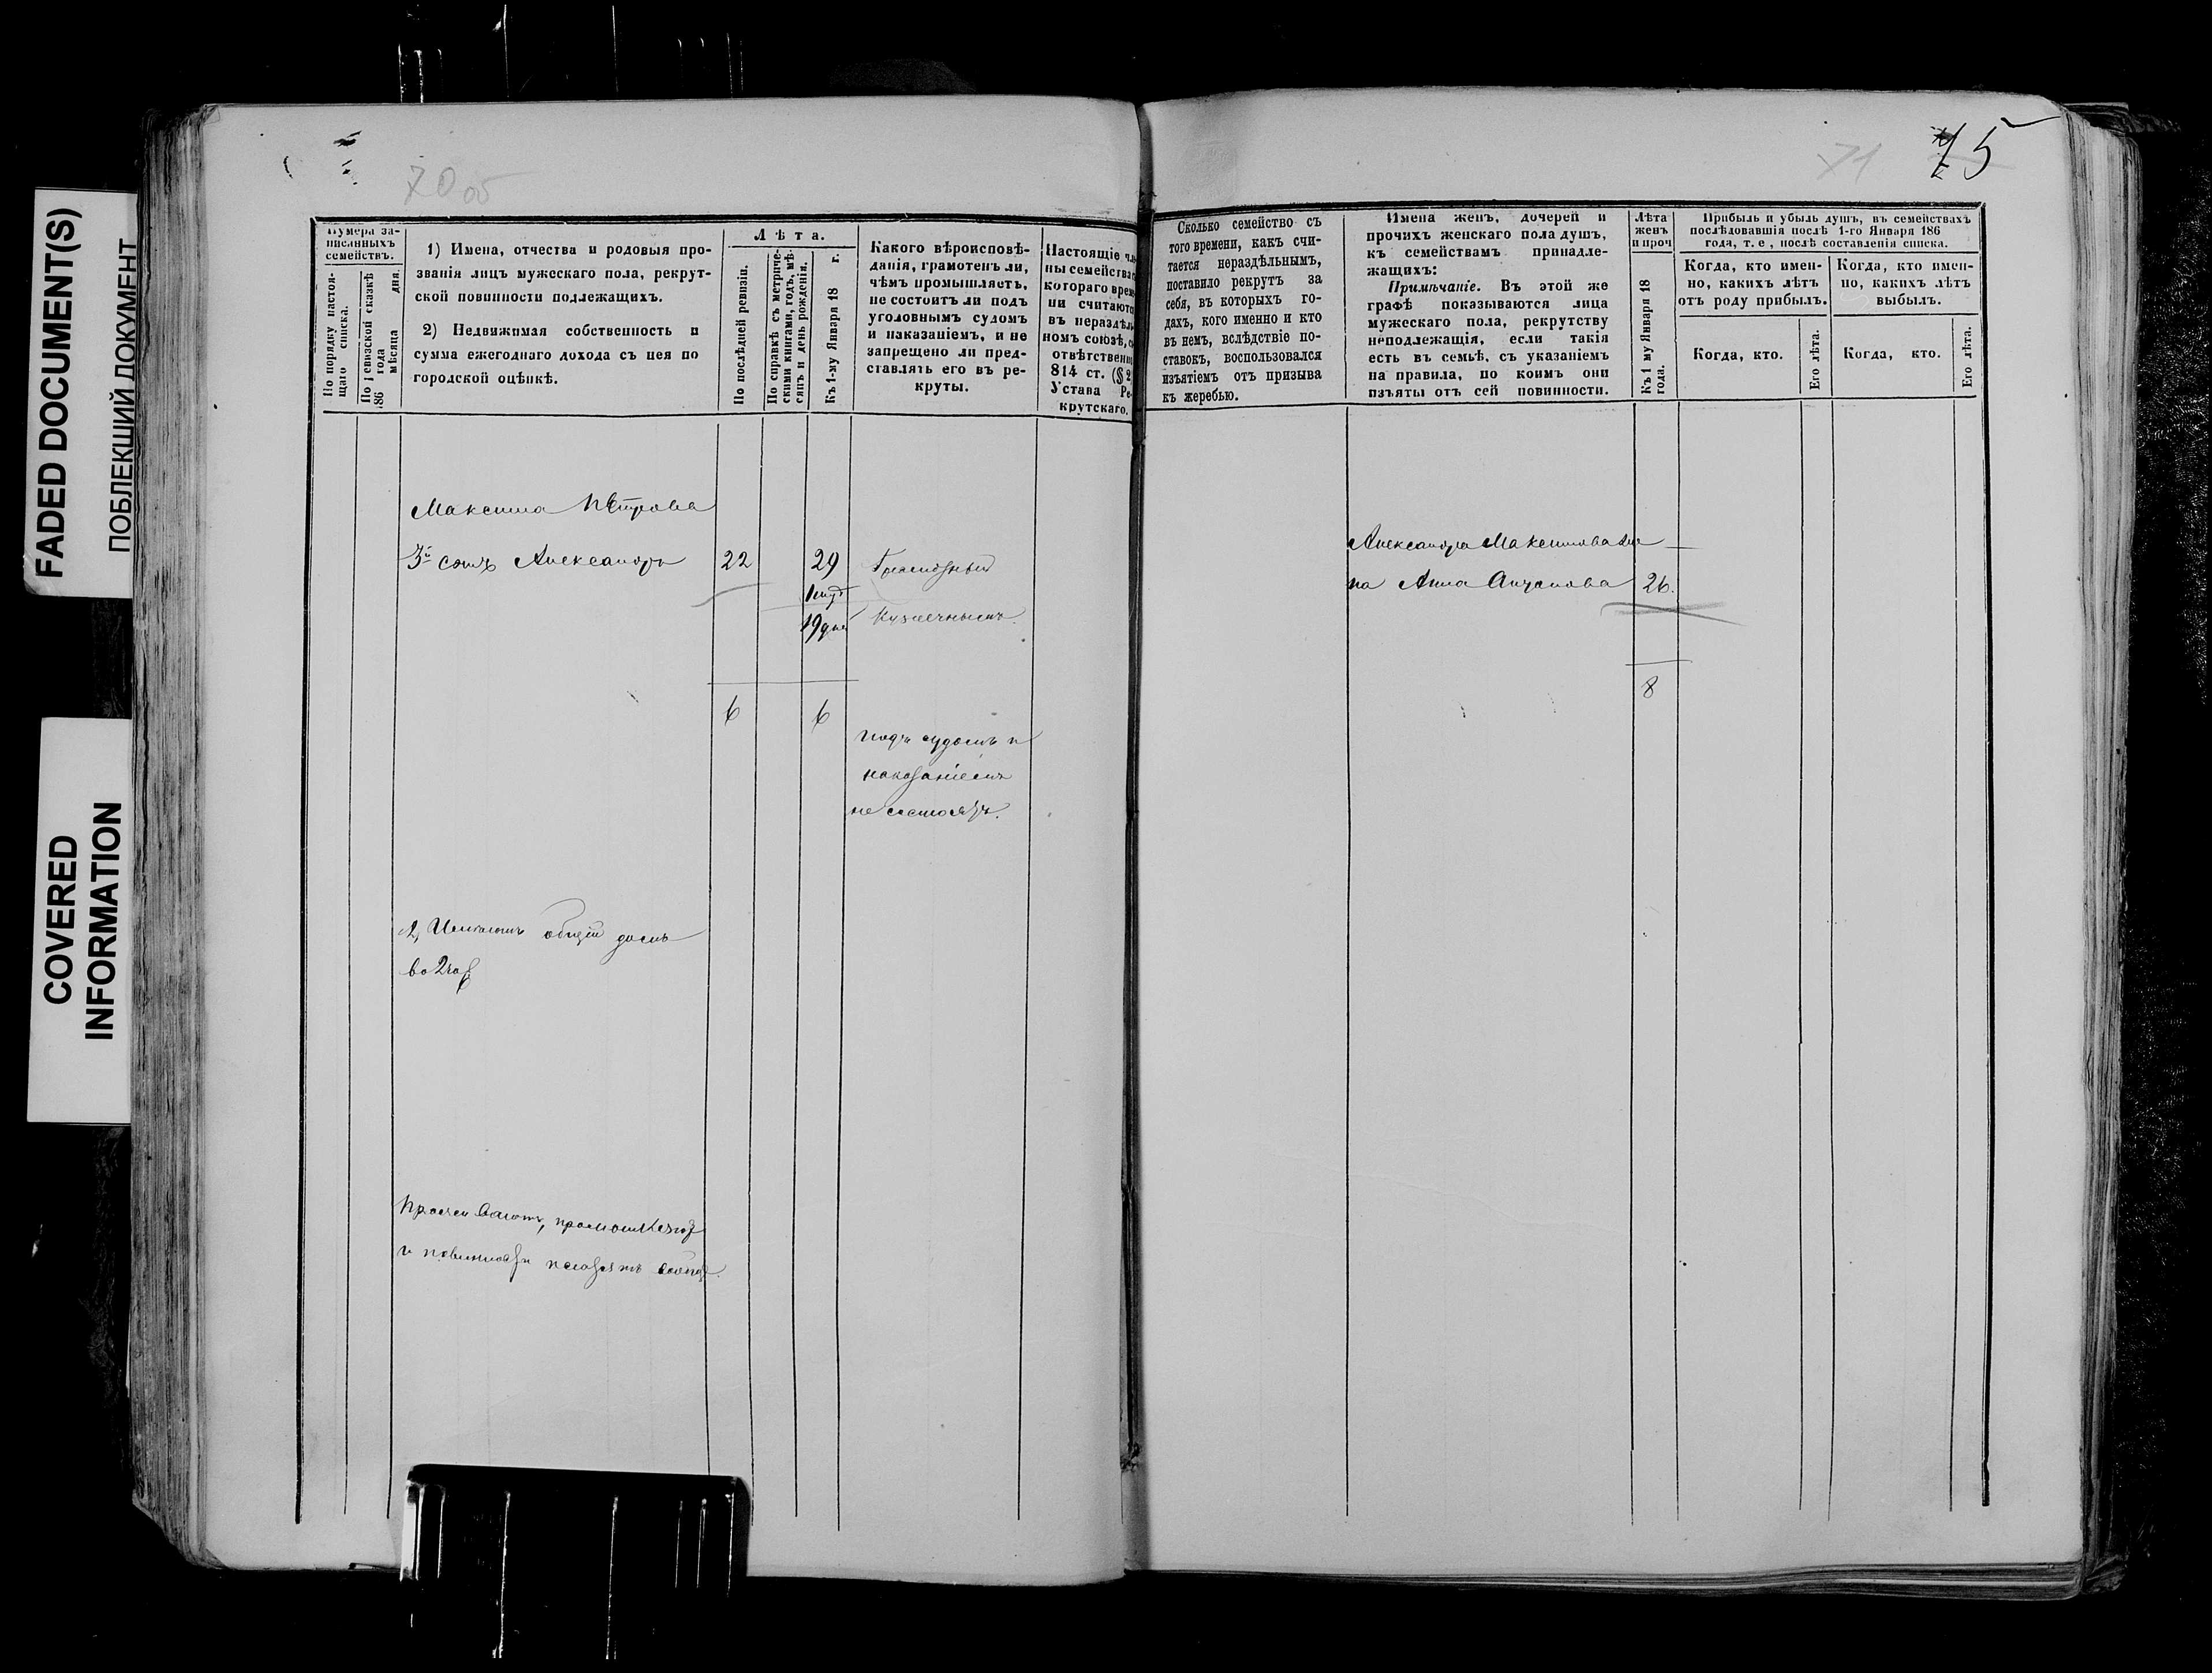 FADED DOCUMENT(S)
ПОБЛЕКШИЙ ДОКУМЕНТ
COVERED
INFORMATION
70 об
Нумера за-
писанныхъ
семействъ.
По порядку настоя-
щаго списка.
По ревизской сказкѣ
186 года мѣсяца дня.
1) Имена, отчества и родовыя про-
званія лицъ мужескаго пола, рекрут-
ской повинности подлежащихъ.
2) Недвижимая собственность и
сумма ежегоднаго дохода съ нея по
городской оцѣнкѣ.
Лѣта.
По послѣдней ревизіи.
По справкѣ съ метриче-
скими книгами, годъ, мѣ-
сяцъ и день рожденія.
Къ 1-му Января 18 г.
Какого вѣроисповѣ-
данія, грамотенъ ли,
чѣмъ промышляетъ,
не состоитъ ли подъ
уголовнымъ судомъ
и наказаніемъ, и не
запрещено ли пред-
ставлять его въ ре-
круты.
Настоящіе
ны семейства
котораго
ни считаются
въ нераздѣль
номъ союзѣ,
отвѣтствен
814 ст. (§ 2
Устава Ре-
крутскаго.
Максима Петрова
3й сынъ Александръ 22 29 Грамотный
19 дней
6 6
подъ судомъ и
наказаніемъ
не состоятъ.
2, Имѣютъ общій домъ
во 2 час
и повинности
71
75
Сколько семейство съ
того времени, какъ счи-
тается нераздѣльнымъ,
поставило рекрутъ за
себя, въ которыхъ го-
дахъ, кого именно и кто
въ немъ, вслѣдствіе по-
ставокъ, воспользовался
изъятіемъ отъ призыва
къ жеребью.
Имена женъ, дочерей и
прочихъ женскаго пола душъ,
къ семействамъ принадле-
жащихъ:
Примѣчаніе. Въ этой же
графѣ показываются лица
мужескаго пола, рекрутству
неподлежащія, если такія
есть въ семьѣ, съ указаніемъ
на правила, по коимъ они
изъяты отъ сей повинности.
Лѣта
женъ
и проч
Къ 1 му Января 18
года.
Прибыль и убыль душъ, въ семействахъ
послѣдовавшія послѣ 1-го Января 186
года, т. е., послѣ составленія списка.
Когда, кто имен-
но, какихъ лѣтъ
отъ роду прибылъ.
Когда, кто.
Его лѣта.
Когда, кто имен-
но, какихъ лѣтъ
выбылъ.
Когда, кто.
Его лѣта.
Александра Максимова же
на Анна 26.
8